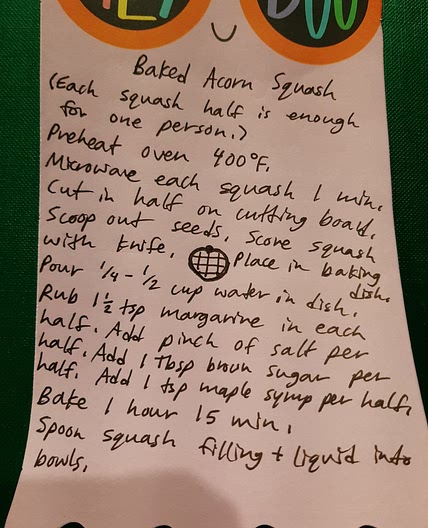 Baked Acorn Squash
(Each squash half is enough
for one person.)
Preheat oven 400°F.
Microwave each squash 1 min.
Cut in half on cutting board.
Scoop out seeds. Score squash
with knife. Place in baking
dish.
Pour 1/4 - 1/2 cup water in dish.
Rub 1 1/2 tsp margarine in each
half. Add pinch of salt per
half. Add 1 Tbsp brown sugar per
half. Add 1 tsp maple syrup per half.
Bake 1 hour 15 min.
Spoon squash filling + liquid into
bowls.